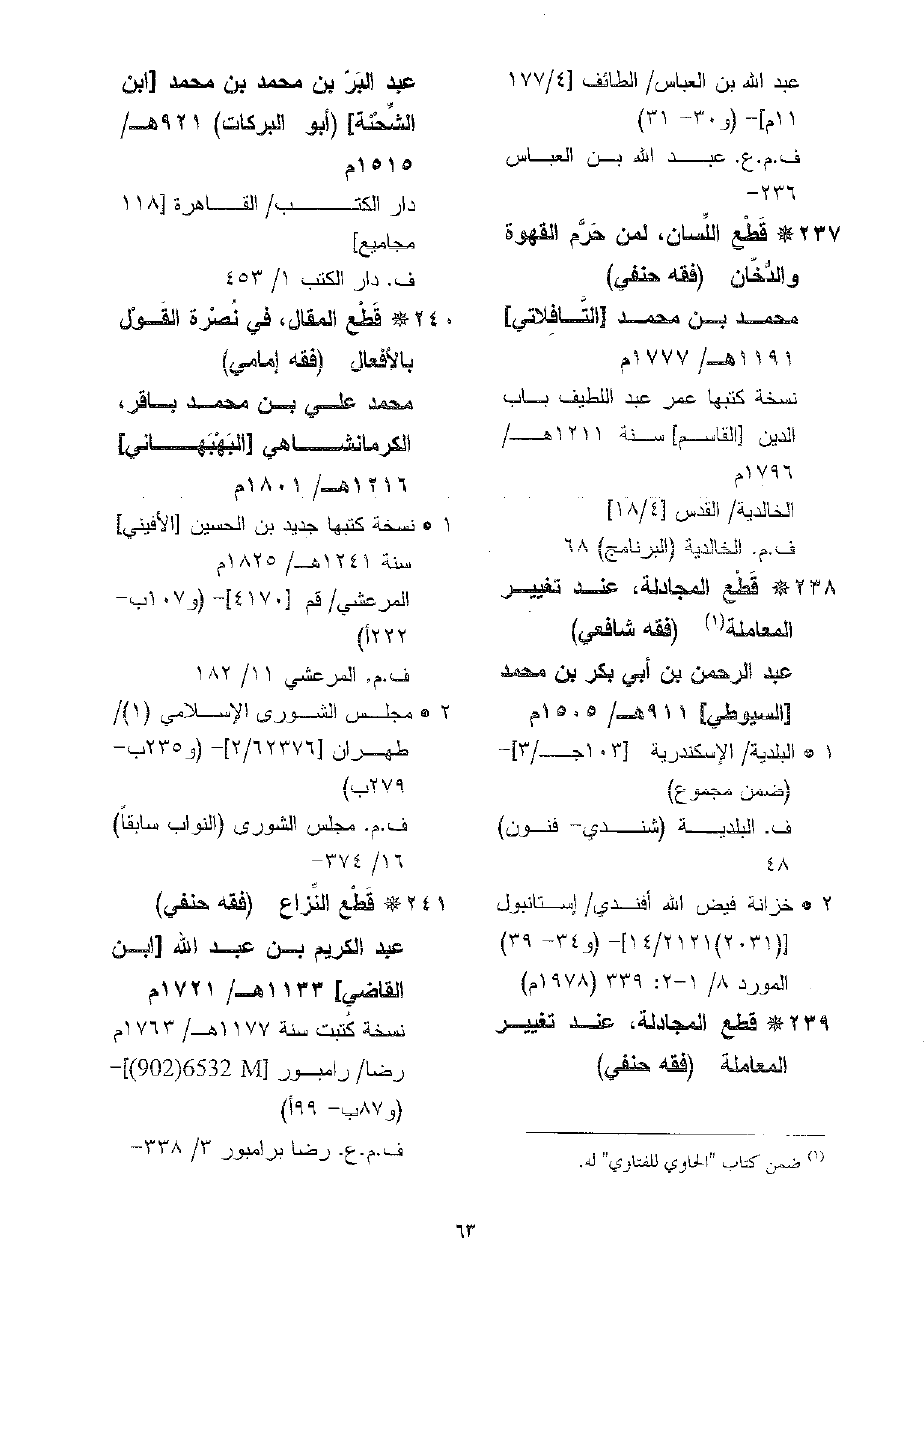 عبد الله بن العباس/ الطائف [١٧٧/٤
١١م]- (و٣٠- ٣١)
ف.م.ع. عبـــد الله بـن العبـاس
٢٣٦-
٢٣٧* قَطْع اللِّسان، لمن حَرَّم القهوة
والدُّخّان (فقه حنفي)
محمـد بـن محمـد [التَّـافلاتي]
١١٩١هـ/ ١٧٧٧م
نسخة كتبها عمر عبد اللطيف بـاب
الدين [القاسـم] سـنة ١٢١١هـ/
١٧٩٦م
الخالدية/ القدس [١٨/٤]
ف.م. الخالدية (البرنامج) ٦٨
٢٣٨* قَطْع المجادلة، عنـد تغييـر
المعاملة(١) (فقه شافعي)
عبد الرحمن بن أبي بكر بن محمد
[السيوطي] ٩١١هـ/ ١٥٠٥م
١ * البلدية/ الإسكندرية [١٠٣جـ/٣]-
(ضمن مجموع)
ف. البلديـــة (شنـدي- فنـون)
٤٨
٢ * خزانة فيض الله أفنـدي/ إسـتانبول
[(٢٠٣١)١٤/٢١٢١]- (و٣٤- ٣٩)
المورد ٨/ ١-٢: ٣٣٩ (١٩٧٨م)
٢٣٩* قطع المجادلة، عنـد تغييـر
المعاملة (فقه حنفي)
(١) ضمن كتاب "الحاوي للفتاوي" له.
عبد البَرّ بن محمد بن محمد [ابن
الشِّحْنَة] (أبو البركات) ٩٢١هـ/
١٥١٥م
دار الكتـــــب/ القـــاهرة [١١٨
مجاميع]
ف. دار الكتب ١/ ٤٥٣
٢٤٠* قَطْع المقال، في نُصرْة القَـوْل
بالأفعال (فقه إمامي)
محمد علـي بـن محمـد بـاقر،
الكرمانشـــاهي [البَهْبَهـــاني]
١٢١٦هـ/ ١٨٠١م
١ * نسخة كتبها جديد بن الحسين [الأفيني]
سنة ١٢٤١هـ/ ١٨٢٥م
المرعشي/ قم [٤١٧٠]- (و١٠٧ب-
٢٢٢أ)
ف.م. المرعشي ١١/ ١٨٢
٢ * مجلـس الشـورى الإسـلامي (١)/
طهـران [٢/٦٢٣٧٦]- (و٢٣٥ب-
٢٧٩ب)
ف.م. مجلس الشورى (النواب سابقاً)
١٦/ ٣٧٤-
٢٤١* قَطْع النِّزاع (فقه حنفي)
عبد الكريم بـن عبـد الله [ابـن
القاضي] ١١٣٣هـ/ ١٧٢١م
نسخة كُتبت سنة ١١٧٧هـ/ ١٧٦٣م
رضا/ رامبـور [M 6532(902)]-
(و٨٧ب- ٩٩أ)
ف.م.ع. رضا برامبور ٣/ ٣٣٨-
٦٣